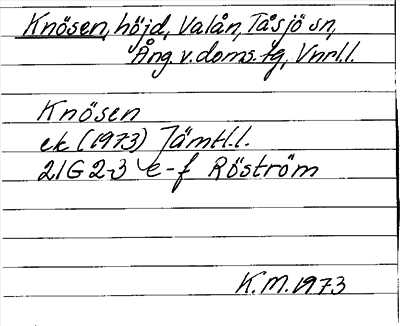 Knösen, höjd, Valån, Tåsjö sn,
Ång. v. doms. tg, Vnrl.l.
Knösen
ek (1973) Jämtl.l.
21G 2-3 e-f Röström
K.M. 1973